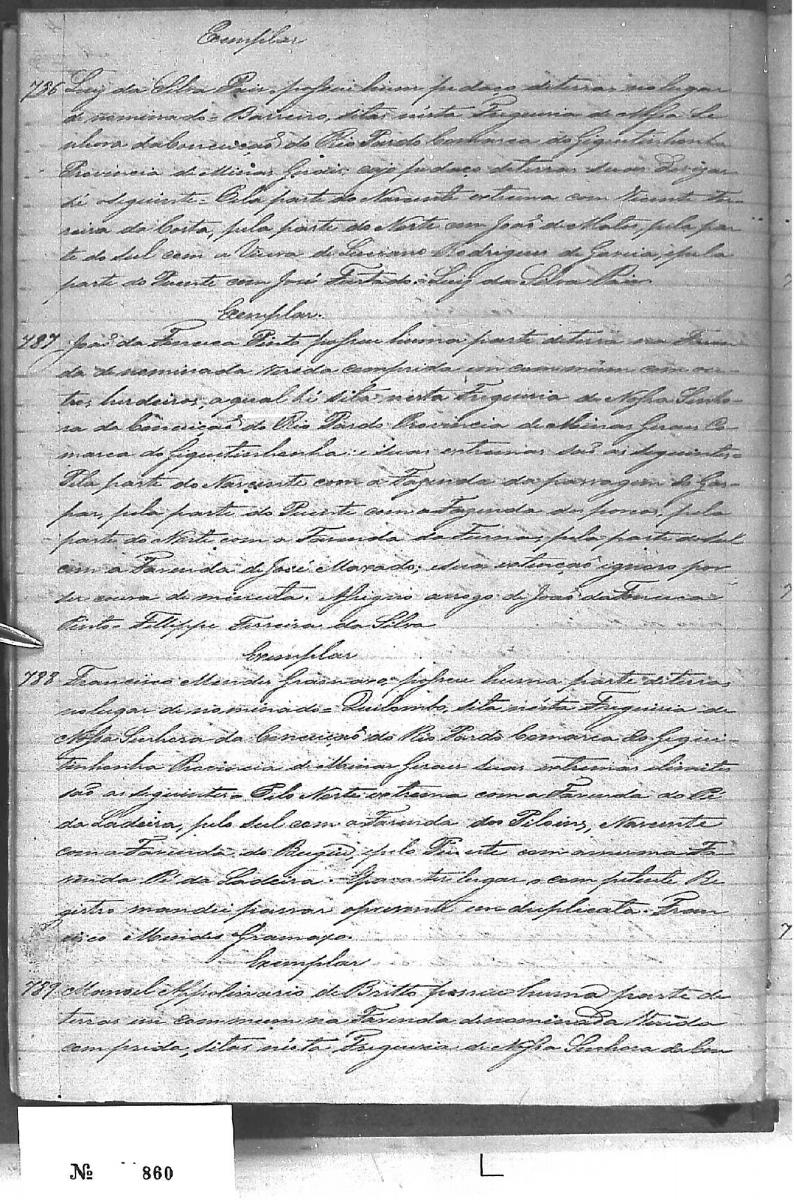 Exemplar
786 Luiz da Silva Pais possui hum pedaço de terras no lugar
de nominado = Barreiro, sitas nésta Freguezia de Nossa Se
nhora da Conceição do Rio Pardo Comarca do Giquitinhonha
Provincia de Minas Geraes, cujo pedaço de terras suas divizas
hé o seguinte = Pela parte do Nascente extrema com Vicente Fer
reira da Costa, pela parte do Norte com João de Matos, pela par
te do Sul com a Viuva de Luciano Rodrigues de Garcia, e pela
parte do Puente com José Furtado = Luiz da Silva Pais
Exemplar.
787 João da Fonceca Pinto possue huma parte de terra na Fazen
da de nominada Vereda comprida em commum com ou
tros herdeiros, a qual hé sita nesta Freguizia de Nossa Senho
ra da Conceição do Rio Pardo Provincia de Minas Geraes Co
marca do Giquitinhonha: e suas extremas são as seguintes =
Pela parte do Nascente com a Fazenda da passagem do Gas
par, pela parte do Puente com a Fazenda dos poços, pela
parte do Norte com a Fazenda da Furnas, pela parte do Sul
com a Fazenda de José Maxado; e sua extenção ignoro por
ser couza de incerta. Assigno arogo de João da Fonceca
Pinto = Fillippe Ferreira da Silva
Exemplar
788 Francisco Mendes Gramaxo, possue huma parte de terras
no lugar de nominado = Quilombo, sita nésta Freguizia de
Nossa Senhora da Conceição do Rio Pardo Comarca do Giqui
tinhonha Provincia de Minas Geraes suas extremas e limites
são as seguintes = Pelo Norte extrema com a Fazenda do Pé
da Ladeira, pelo Sul com a Fazenda dos Piloins, Nascente
com a Fazenda do Bugre, e pelo Puente com a mesma Fa
zenda Pé da Ladeira. E para ter lugar o com petente Re
gistro mandei passar o presente em duplicata. Fran
cisco Mendes Gramaxo.
Exemplar
789 Manoel Appolinario de Britto possue huma parte de
terras em commum na Fazenda denominada Vereda
comprida, sitas nésta Freguizia de Nossa Senhora da Con
Nº 860